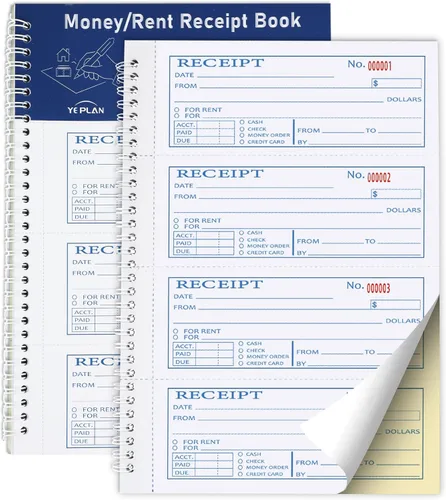 Money/Rent Receipt Book
YE PLAN
RECEIPT
DATE
FROM
FOR RENT
FOR
ACCT.
PAID
DUE
RECEIPT
DATE
FROM
FOR RENT
FOR
ACCT.
PAID
DUE
RECEIPT
DATE
FROM
FOR RENT
FOR
ACCT.
PAID
DUE
RECEIPT No. 000001
DATE
FROM $
DOLLARS
FOR RENT
FOR
ACCT. CASH
PAID CHECK FROM TO
DUE MONEY ORDER
CREDIT CARD BY
RECEIPT No. 000002
DATE
FROM $
DOLLARS
FOR RENT
FOR
ACCT. CASH
PAID CHECK FROM TO
DUE MONEY ORDER
CREDIT CARD BY
RECEIPT No. 000003
DATE
FROM $
DOLLARS
FOR RENT
FOR
ACCT. CASH
PAID CHECK FROM TO
DUE MONEY ORDER
CREDIT CARD BY
RECEIPT
DATE
FROM
FOR RENT
FOR
ACCT. CASH
PAID CHECK FROM
DUE MONEY ORDER
CREDIT CARD BY